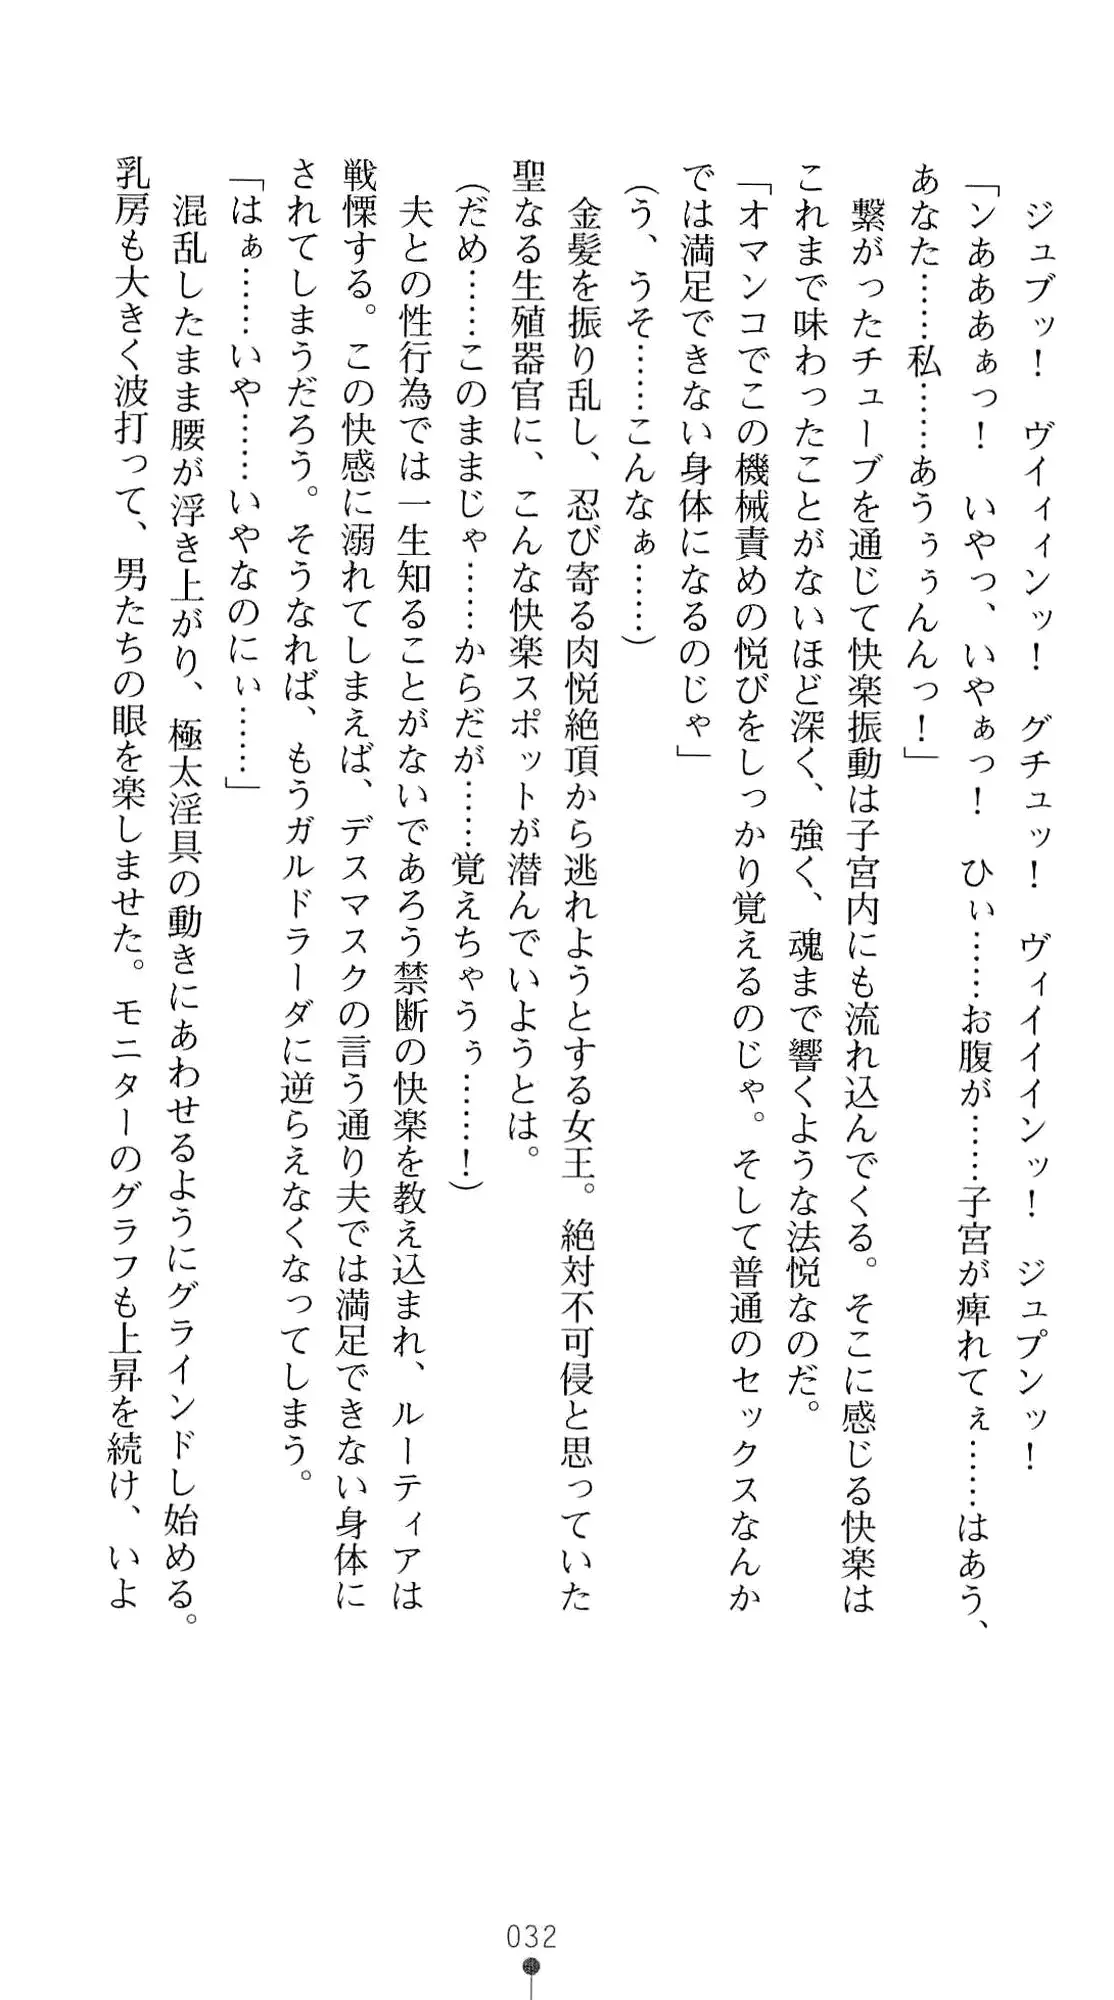 ジュブッ！　ヴィィンッ！　グチュッ！　ヴィイインッ！　ジュプンッ！
「ンあああぁっ！　いやっ、いやぁっ！　ひぃ……お腹が……子宮が痺れてぇ……はあう、
あなた……私……あうぅぅんんっ！」
　繋がったチューブを通じて快楽振動は子宮内にも流れ込んでくる。そこに感じる快楽は
これまで味わったことがないほど深く、強く、魂まで響くような法悦なのだ。
「オマンコでこの機械責めの悦びをしっかり覚えるのじゃ。そして普通のセックスなんか
では満足できない身体になるのじゃ」
（う、うそ……こんなぁ……）
　金髪を振り乱し、忍び寄る肉悦絶頂から逃れようとする女王。絶対不可侵と思っていた
聖なる生殖器官に、こんな快楽スポットが潜んでいようとは。
（だめ……このままじゃ……からだが……覚えちゃうぅ……！）
　夫との性行為では一生知ることがないであろう禁断の快楽を教え込まれ、ルーティアは
戦慄する。この快感に溺れてしまえば、デスマスクの言う通り夫では満足できない身体に
されてしまうだろう。そうなれば、もうガルドラーダに逆らえなくなってしまう。
「はぁ……いや……いやなのにぃ……」
　混乱したまま腰が浮き上がり、極太淫具の動きにあわせるようにグラインドし始める。
乳房も大きく波打って、男たちの眼を楽しませた。モニターのグラフも上昇を続け、いよ
032